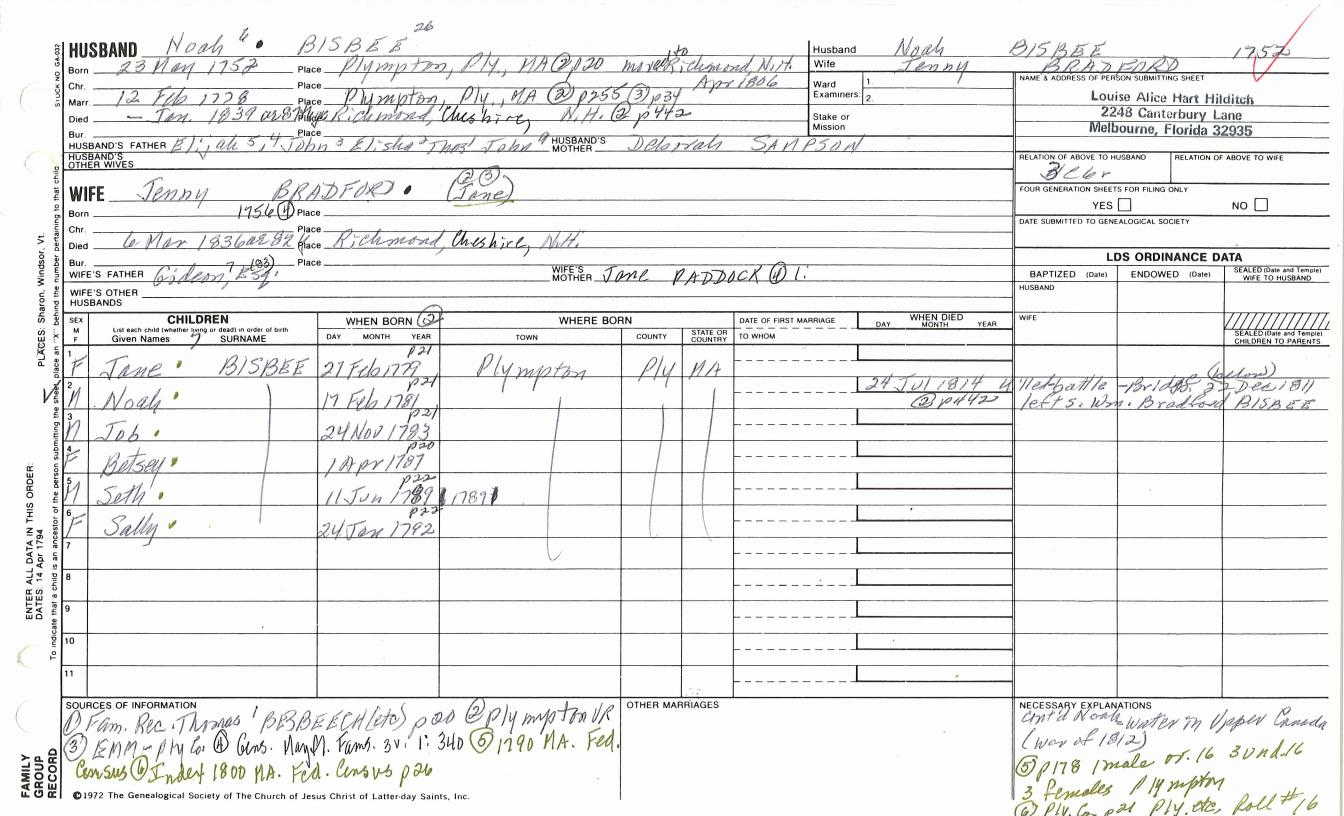 HUSBAND Noah 6 • BISBEE 26
Born 23 May 1752 Place Plympton, Ply., MA ② p20 moved to Richmond, N.H.
Chr. Place Apr 1806
Marr 12 Feb 1778 Place Plympton, Ply., MA ② p255 ③ p34
Died - Jan. 1839 Place Richmond, Cheshire, N.H. ② p442
Bur. Place
HUSBAND'S FATHER Elijah 5, 4 John 3 Elisha 2 Thos 1 John HUSBAND'S MOTHER Deborah SAMPSON
HUSBAND'S OTHER WIVES
Husband Noah BISBEE 1752
Wife Jenny BRADFORD
Ward 1.
Examiners: 2.
Stake or
Mission
NAME & ADDRESS OF PERSON SUBMITTING SHEET
Louise Alice Hart Hilditch
2248 Canterbury Lane
Melbourne, Florida 32935
RELATION OF ABOVE TO HUSBAND RELATION OF ABOVE TO WIFE
FOUR GENERATION SHEETS FOR FILING ONLY
YES NO
DATE SUBMITTED TO GENEALOGICAL SOCIETY
WIFE Jenny BRADFORD • ② ③ (Jane)
Born 1756 ④ Place
Chr. Place
Died 6 Mar 1836 ae 82 Place Richmond, Cheshire, N.H.
Bur. Place
WIFE'S FATHER Gideon, 7 Esq. WIFE'S MOTHER Jane PADDOCK ④ 1:
WIFE'S OTHER HUSBANDS
LDS ORDINANCE DATA
BAPTIZED (Date) ENDOWED (Date) SEALED (Date and Temple) WIFE TO HUSBAND
HUSBAND
WIFE
SEALED (Date and Temple) CHILDREN TO PARENTS
SEX M F CHILDREN WHEN BORN ② WHERE BORN DATE OF FIRST MARRIAGE WHEN DIED
List each child (whether living or dead) in order of birth
Given Names 7 SURNAME DAY MONTH YEAR TOWN COUNTY STATE OR COUNTRY TO WHOM DAY MONTH YEAR
1 F Jane BISBEE 27 Feb 1779 p21 Plympton Ply MA
2 M Noah 17 Feb 1781 p21 24 Jul 1814 ② p442 (below) 22 Dec 1811
left s. Wm. Bradford BISBEE
3 M Job 24 Nov 1783 p21
4 F Betsey 1 Apr 1787 p20
5 M Seth 11 Jun 1789 1789 p22
6 F Sally 24 Jan 1792 p22
7
8
9
10
11
SOURCES OF INFORMATION
① Fam. Rec. Thomas 1 BESBEECH (etc) p20 ② Plympton VR
③ EMM - Ply Co. ④ Gens. May. M. Fams. 3v. 1: 340 ⑤ 1790 MA. Fed.
Census ⑥ Index 1800 MA. Fed. Census p26
OTHER MARRIAGES
NECESSARY EXPLANATIONS
Cont'd Noah water in Upper Canada
(War of 1812)
⑤ p178 1 male ov. 16 3 und. 16
3 females Plympton
⑥ Ply. Co. p21 Ply. etc, Roll #16
©1972 The Genealogical Society of The Church of Jesus Christ of Latter-day Saints, Inc.
STOCK NO. GA-032
PLACES: Sharon, Windsor, Vt.
ENTER ALL DATA IN THIS ORDER:
DATES: 14 Apr 1794
To indicate that a child is an ancestor of the person submitting the sheet, place an "X" behind the number pertaining to that child.
FAMILY
GROUP
RECORD